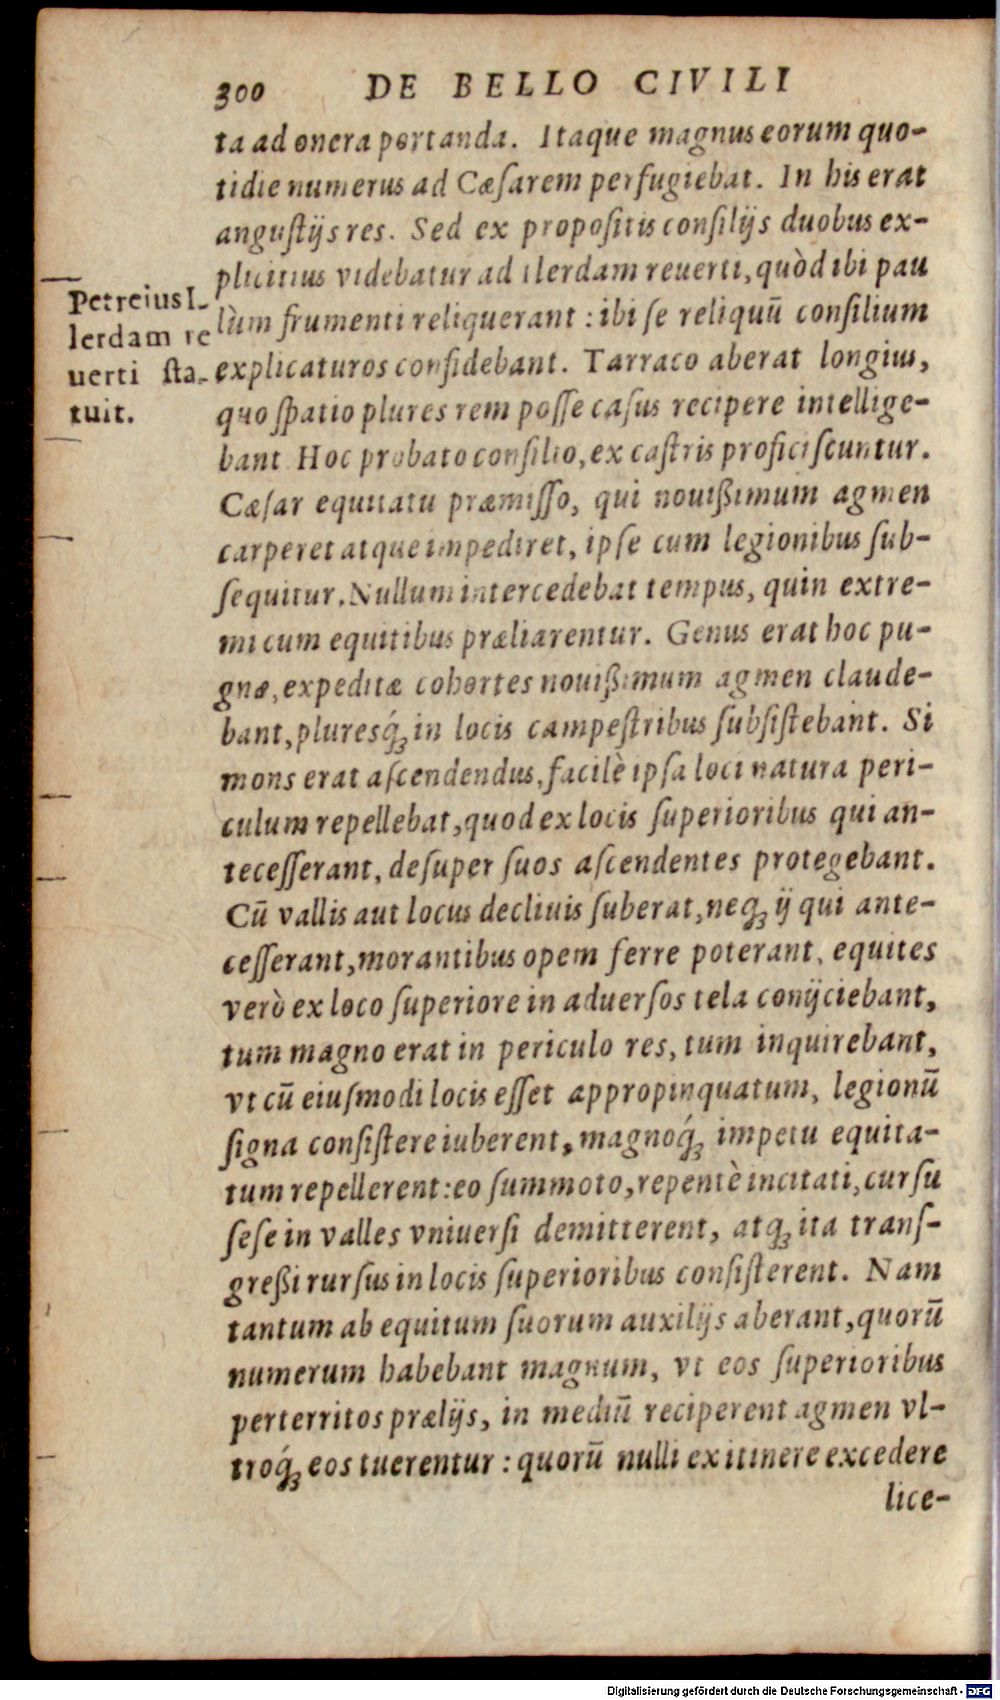 300 DE BELLO CIVILI
ta ad onera portanda. Itaque magnus eorum quo-
tidie numerus ad Cæſarem perfugiebat. In his erat
anguſtijs res. Sed ex propoſitis conſilijs duobus ex-
plicitius videbatur ad Ilerdam reuerti, quòd ibi pau
lùm frumenti reliquerant : ibi ſe reliquū conſilium
explicaturos confidebant. Tarraco aberat longius,
quo ſpatio plures rem poſſe caſus recipere intellige-
bant Hoc probato conſilio, ex caſtris proficiſcuntur.
Cæſar equitatu præmiſſo, qui nouißimum agmen
carperet atque impediret, ipſe cum legionibus ſub-
ſequitur. Nullum intercedebat tempus, quin extre-
mi cum equitibus præliarentur. Genus erat hoc pu-
gnæ, expeditæ cohortes nouißimum agmen claude-
bant, pluresq́ꝫ in locis campeſtribus ſubſiſtebant. Si
mons erat aſcendendus, facilè ipſa loci natura peri-
culum repellebat, quod ex locis ſuperioribus qui an-
teceſſerant, deſuper ſuos aſcendentes protegebant.
Cū vallis aut locus decliuis ſuberat, neqꝫ ij qui ante-
ceſſerant, morantibus opem ferre poterant, equites
verò ex loco ſuperiore in aduerſos tela conijciebant,
tum magno erat in periculo res, tum inquirebant,
vt cū eiuſmodi locis eſſet appropinquatum, legionū
ſigna conſiſtere iuberent, magnoq́ꝫ impetu equita-
tum repellerent: eo ſummoto, repentè incitati, curſu
ſeſe in valles vniuerſi demitterent, atqꝫ ita tranſ-
greßi rurſus in locis ſuperioribus conſiſterent. Nam
tantum ab equitum ſuorum auxilijs aberant, quorū
numerum habebant magnum, vt eos ſuperioribus
perterritos prælijs, in mediū reciperent agmen vl-
troq́ꝫ eos tuerentur : quorū nulli ex itinere excedere
lice-
Petreius I-
lerdam re
uerti ſta-
tuit.
Digitalisierung gefördert durch die Deutsche Forschungsgemeinschaft - DFG